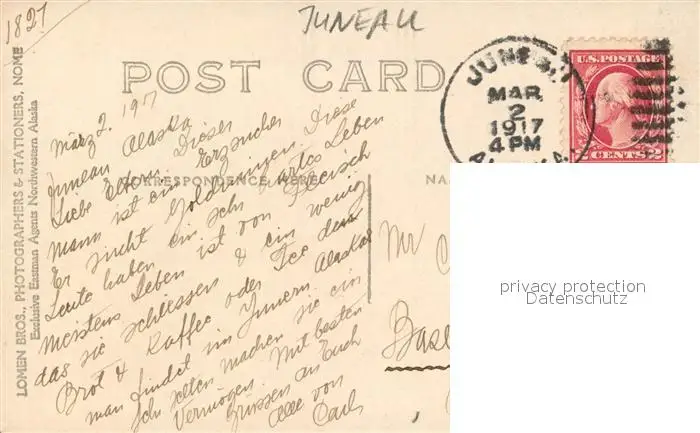 1827
JUNEAU
POST CARD
LOMEN BROS., PHOTOGRAPHERS & STATIONERS, NOME
Exclusive Eastman Agents Northwestern Alaska
CORRESPONDENCE HERE
NA
JUNEAU
MAR
2
1917
4 PM
ALASKA
U.S. POSTAGE
2 CENTS 2
März 2. 1917
Juneau Alaska
Liebe Eltern. Dieser
Mann ist ein Erzsucher
Er sucht Goldminen. Diese
Leute haben ein sehr hartes Leben
Meistens Leben ist von Fleisch
das sie schiessen & ein wenig
Brot & Kaffee oder Tee denn
man findet im Innern Alaskas
sehr selten machen sie ein
Vermögen. Mit besten
Grüssen an Euch
alle von
Carl
Mr
Basel
privacy protection
Datenschutz